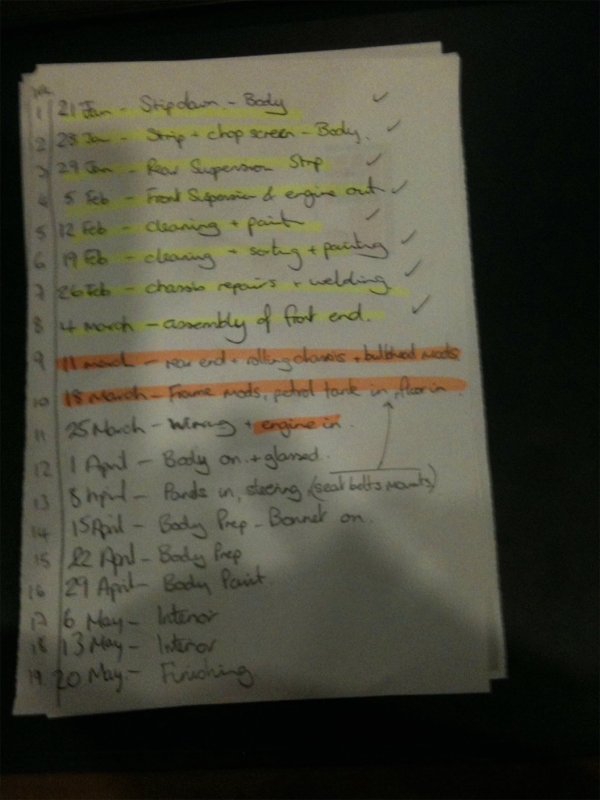 WK
1 21 Jan - Stripdown - Body ✓
2 28 Jan - Strip + chop screen - Body. ✓
3 29 Jan - Rear Suspension Strip ✓
4 5 Feb - Front Suspension & engine out ✓
5 12 Feb - cleaning + paint ✓
6 19 Feb - cleaning + sorting + painting ✓
7 26 Feb - chassis repairs + welding ✓
8 4 march - assembly of front end. ✓
9 11 march - rear end + rolling chassis + bulkhead mods
10 18 March - Frame mods, petrol tank in, floor in.
11 25 March - Wiring + engine in.
12 1 April - Body on + glassed.
13 8 April - Panels in, steering, (seat belts mounts)
14 15 April - Body Prep - Bonnet on.
15 22 April - Body Prep
16 29 April - Body Paint.
17 6 May - Interior
18 13 May - Interior
19 20 May - Finishing